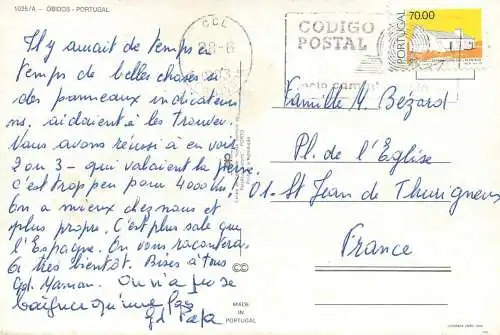 1025/A — ÓBIDOS - PORTUGAL
Il y aurait de temps à
temps de belles choses si
des panneaux indicateurs
ns. aidaient à les trouver.
Vous avons réussi à en voir
2 ou 3 - qui valaient la peine.
C'est trop peu pour 4000 km
On a mieux chez nous et
plus propre. C'est plus sale que
l'Espagne. On vous racontera
à très bientôt. Bises à tous
Gd. Maman. On n'a pu se
baigner qu'une fois
gd Papa
CODIGO
POSTAL
70.00
PORTUGAL
Famille M. Bézard
Pl. de l'Église
01. St Jean de Thurigneux
France
MADE IN
PORTUGAL